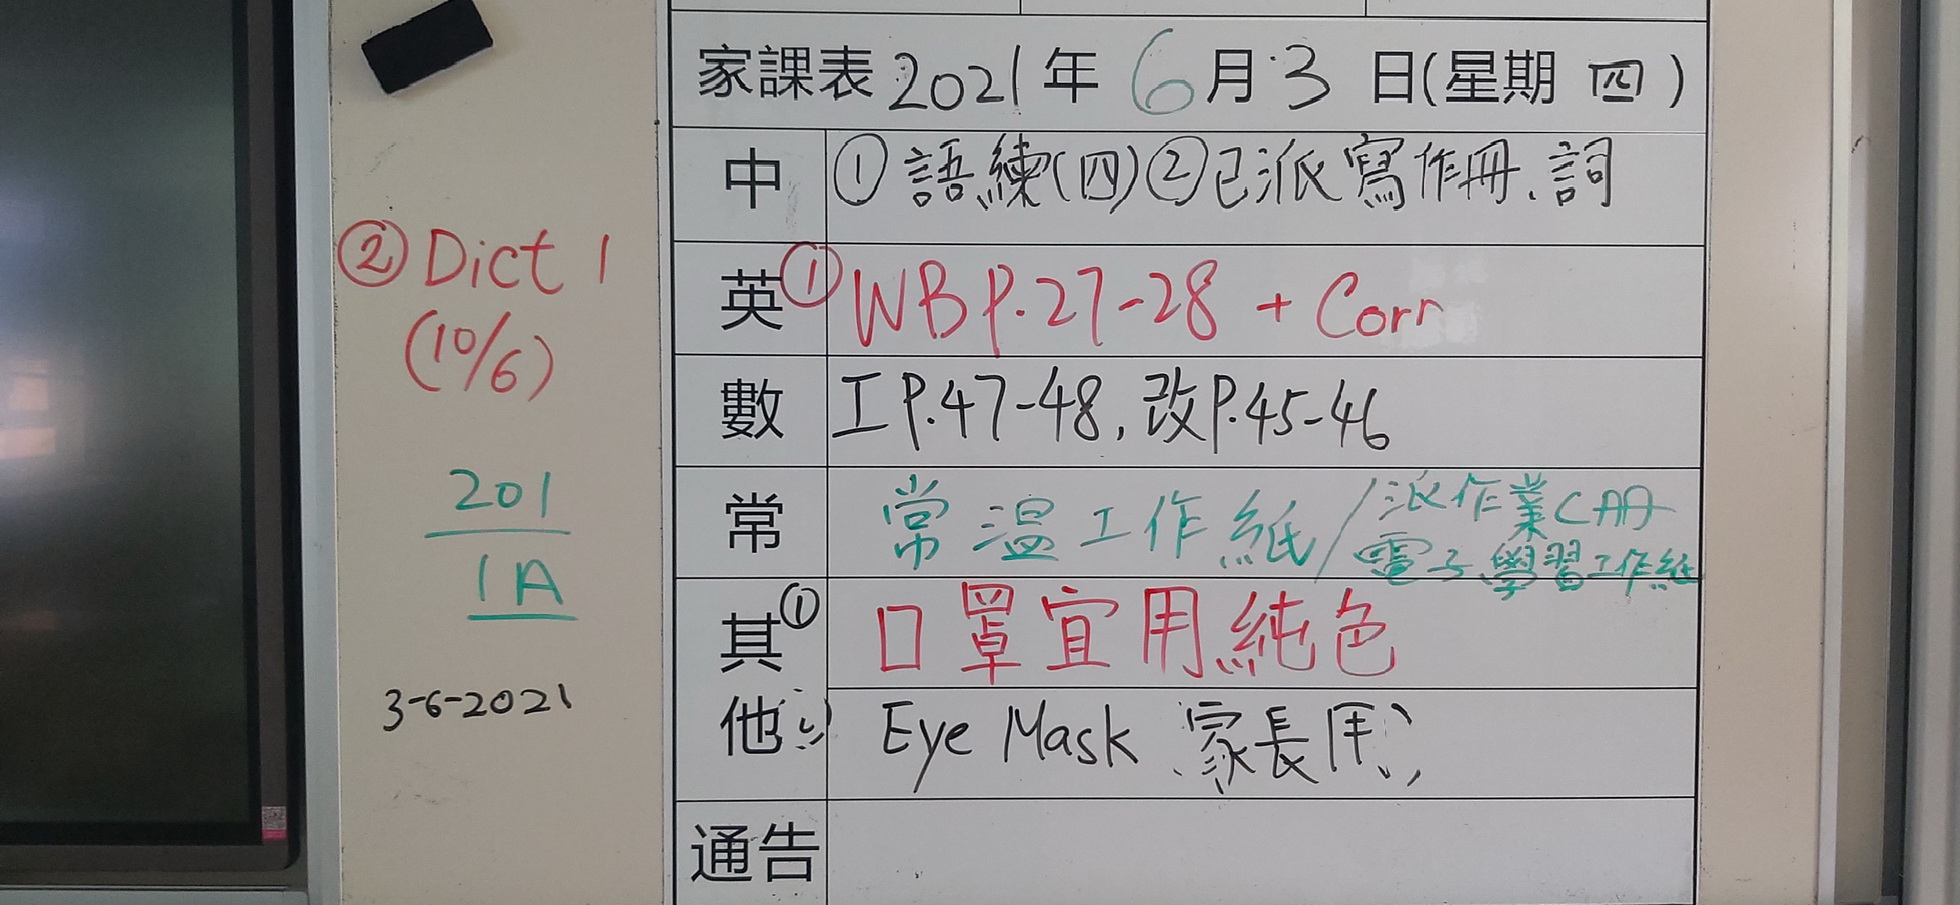 家課表 2021年 6月3日(星期四)
中 ①語練(四)②已派寫作冊、詞
英 ①WB P.27-28 + Corr
②Dict 1
(10/6)
數 工P.47-48, 改P.45-46
常 常溫工作紙/派作業C冊
電子學習工作紙
201
1A
其他
①口罩宜用純色
Eye Mask 家長用
3-6-2021
通告